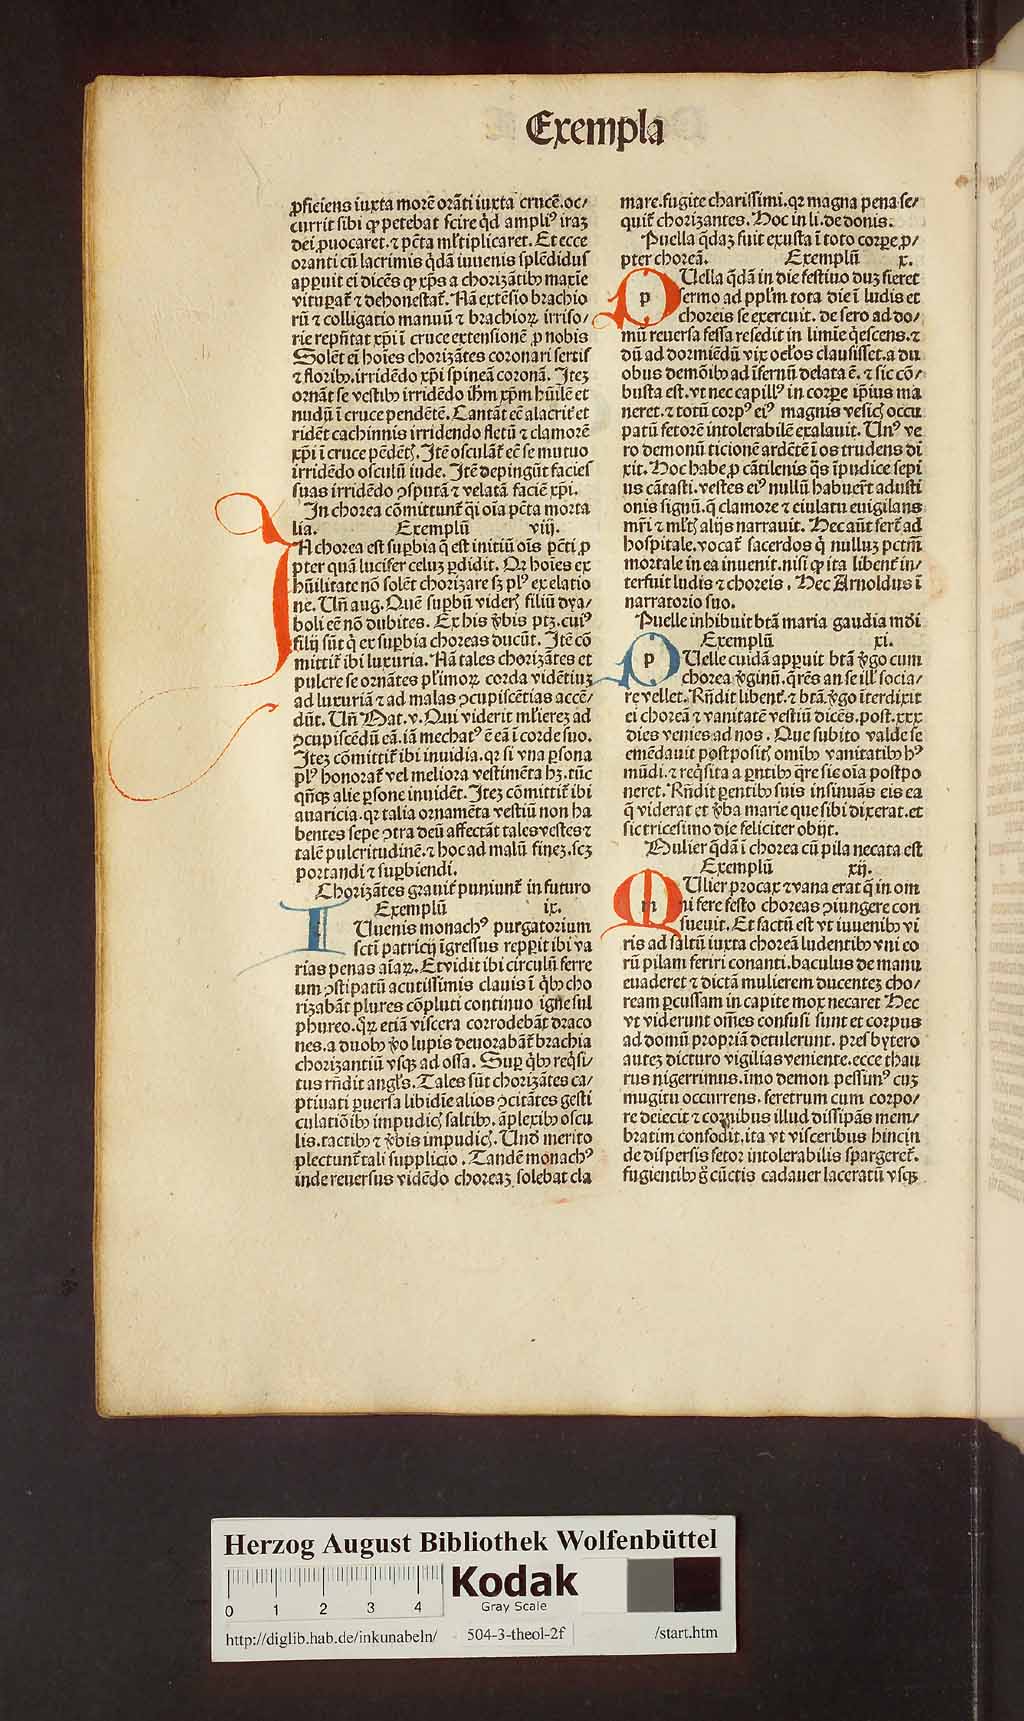 Exempla
ꝓficiens iuxta morē orāti iuxta crucē.oc/
currit sibi ꝙ petebat scire qͥd ampliꝰ iraꝫ
dei ꝓuocaret.⁊ pctā mltiplicaret. Et ecce
oranti cū lacrimis qͥdā iuuenis splēdidus
apꝑuit ei dicēs ꝙ xp̄s a chorizātibꝫ maxīe
vituꝑat̄ ⁊ dehonestat̄. Nā extēsio brachio
rū ⁊ colligatio manuū ⁊ brachioꝝ irriso/
rie rep̄ntat xp̄i ī cruce extensionē ꝓ nobis
Solēt ei hoīes chorizātes coronari sertis
⁊ floribꝫ.irridēdo xp̄i spineā coronā. Iteꝫ
ornāt se vestibꝫ irridēdo ihm̄ xp̄m hūilē et
nudū ī cruce pendētē. Cantāt eē alacrit̄ et
ridēt cachinnis irridendo fletū ⁊ clamorē
xp̄i ī cruce pēdētꝭ. Itē osculāt̄ eē se mutuo
irridēdo osculū iude. Itē depingūt facies
suas irridēdo ꝯsputā ⁊ velatā faciē xp̄i.
In chorea cōmittunt̄ qͥ oīa pctā morta
lia. Exemplū viij.
IN chorea est suꝑbia q̄ est initiū oīs pcti ꝓ
pter quā lucifer celuꝫ ꝑdidit. Qꝛ hoīes ex
hūilitate nō solēt chorizare sꝫ plꝰ ex elatio
ne. Un̄ aug. Quē suꝑbū viderꝭ filiū dya/
boli eē nō dubites. Ex his v̄bis ptꝫ.cuiꝰ
filij sūt qͥ ex suꝑbia choreas ducūt. Itē cō
mittit̄ ibi luxuria. Nā tales chorizātes et
pulcre se ornātes pl̄imoꝝ corda vidētiuꝫ
ad luxuriā ⁊ ad malas ꝯcupiscētias accē/
dūt. Un̄ Mat. v. Qui viderit ml̄iereꝫ ad
ꝯcupiscēdū eā.iā mechatꝰ ē eā ī corde suo.
Iteꝫ cōmittit̄ ibi inuidia.qꝛ si vna ꝑsona
plꝰ honorat̄ vel meliora vestimēta hꝫ.tūc
qn̄qꝫ alie ꝑsone inuidēt. Iteꝫ cōmittit̄ ibi
auaricia.qꝛ talia ornamēta vestiū non ha
bentes sepe ꝯtra deū affectāt tales vestes ⁊
talē pulcritudinē.⁊ hoc ad malū fineꝫ.scꝫ
portandi ⁊ suꝑbiendi.
Chorizātes grauit̄ puniunt̄ in futuro
Exemplū ix.
IUuenis monachꝰ purgatorium
sctī patricij īgressus repꝑit ibi va
rias penas aīaꝝ. Et vidit ibi circulū ferre
um ꝯstipatū acutissimis clauis ī qͥbꝫ cho
rizabāt plures cōpluti continuo igne sul
phureo.qͦꝝ etiā viscera corrodebāt draco
nes.a duobꝫ v̄o lupis deuorabāt̄ brachia
chorizantiū vsqꝫ ad ossa. Suꝑ qͥbꝫ reqͥsi/
tus rn̄dit angl̄s. Tales sūt chorizātes ca/
ptiuati ꝑuersa libidīe alios ꝯcitātes gesti
culatiōibꝫ impudicꝭ saltibꝫ.āplexibꝫ oscu
lis.tactibꝫ ⁊ v̄bis impudicꝭ. Unď merito
plectunt̄ tali supplicio. Tandē monachꝰ
inde reuersus vidēdo choreaꝫ solebat cla
mare.fugite charissimi.qꝛ magna pena se/
quit̄ chorizantes. Hoc in li.de donis.
Puella qͥdaꝫ fuit exusta ī toto corꝑe ꝓ/
pter choreā. Exemplū x.
PUella qͥdā in die festiuo duꝫ fieret
sermo ad ppl̄m tota die ī ludis et
choreis se exercuit. de sero ad do/
mū reuersa fessa resedit in limīe qͥescens.⁊
dū ad dormiēdū vix ocl̄os clausisset.a du
obus demōibꝫ ad īfernū delata ē. ⁊ sic cō/
busta est.vt nec capillꝰ in corꝑe ip̄ius ma
neret.⁊ totū corpꝰ eiꝰ magnis vesicꝭ occu
patū fetorē intolerabilē exalauit. Unꝰ ve
ro demonū ticionē ardētē ī os trudens di
xit. Hoc habe ꝓ cātilenis qͣs īpudice sepi
us cātasti.vestes eiꝰ nullū habuer̄t adusti
onis signū.q̄ clamore ⁊ eiulatu euigilans
mr̄i ⁊ ml̄tꝭ alijs narrauit. Hec aūt fert̄ ad
hospitale.vocat̄ sacerdos qͥ nulluꝫ pctm̄
mortale in ea inuenit.nisi ꝙ ita libent̄ in/
terfuit ludis ⁊ choreis. Hec Arnoldus ī
narratorio suo.
Puelle inhibuit btā maria gaudia mōi
Exemplū xi.
PUelle cuidā apꝑuit btā v̄go cum
chorea v̄ginū.qͬēs an se ill' socia/
re vellet. Rn̄dit libent̄.⁊ btā v̄go īterdixit
ei choreā ⁊ vanitatē vestiū dicēs.post.xxx
dies venies ad nos. Que subito valde se
emēdauit postpositꝭ om̄ibꝫ vanitatibꝫ hꝰ
mūdi.⁊ reqͥsita a ꝑntibꝫ qͣre sic oīa postpo
neret. Rn̄dit ꝑentibꝫ suis insinuās eis ea
q̄ viderat et v̄ba marie que sibi dixerat.et
sic tricesimo die feliciter obijt.
Mulier qͥdā ī chorea cū pila necata est
Exemplū xij.
MUlier ꝓcax ⁊ vana erat q̄ in om
ni fere festo choreas ꝯiungere con
sueuit. Et factū est vt iuuenibꝫ vi
ris ad saltū iuxta choreā ludentibꝫ vni eo
rū pilam feriri conanti.baculus de manu
euaderet ⁊ dictā mulierem ducenteꝫ cho/
ream ꝑcussam in capite mox necaret Hec
vt viderunt om̄es confusi sunt et corpus
ad domū propriā detulerunt. presbytero
auteꝫ dicturo vigilias veniente.ecce thau
rus nigerrimus.imo demon pessimꝰ cuꝫ
mugitu occurrens. feretrum cum corpo/
re deiecit ⁊ cornibus illud dissipās mem/
bratim consodit.ita vt visceribus hincin
de dispersis fetor intolerabilis spargeret̄.
fugientibꝫ gͦ cūctis cadauer laceratū vsqꝫ
Herzog August Bibliothek Wolfenbüttel
0 1 2 3 4
Kodak
Gray Scale
http://diglib.hab.de/inkunabeln/ 504-3-theol-2f /start.htm